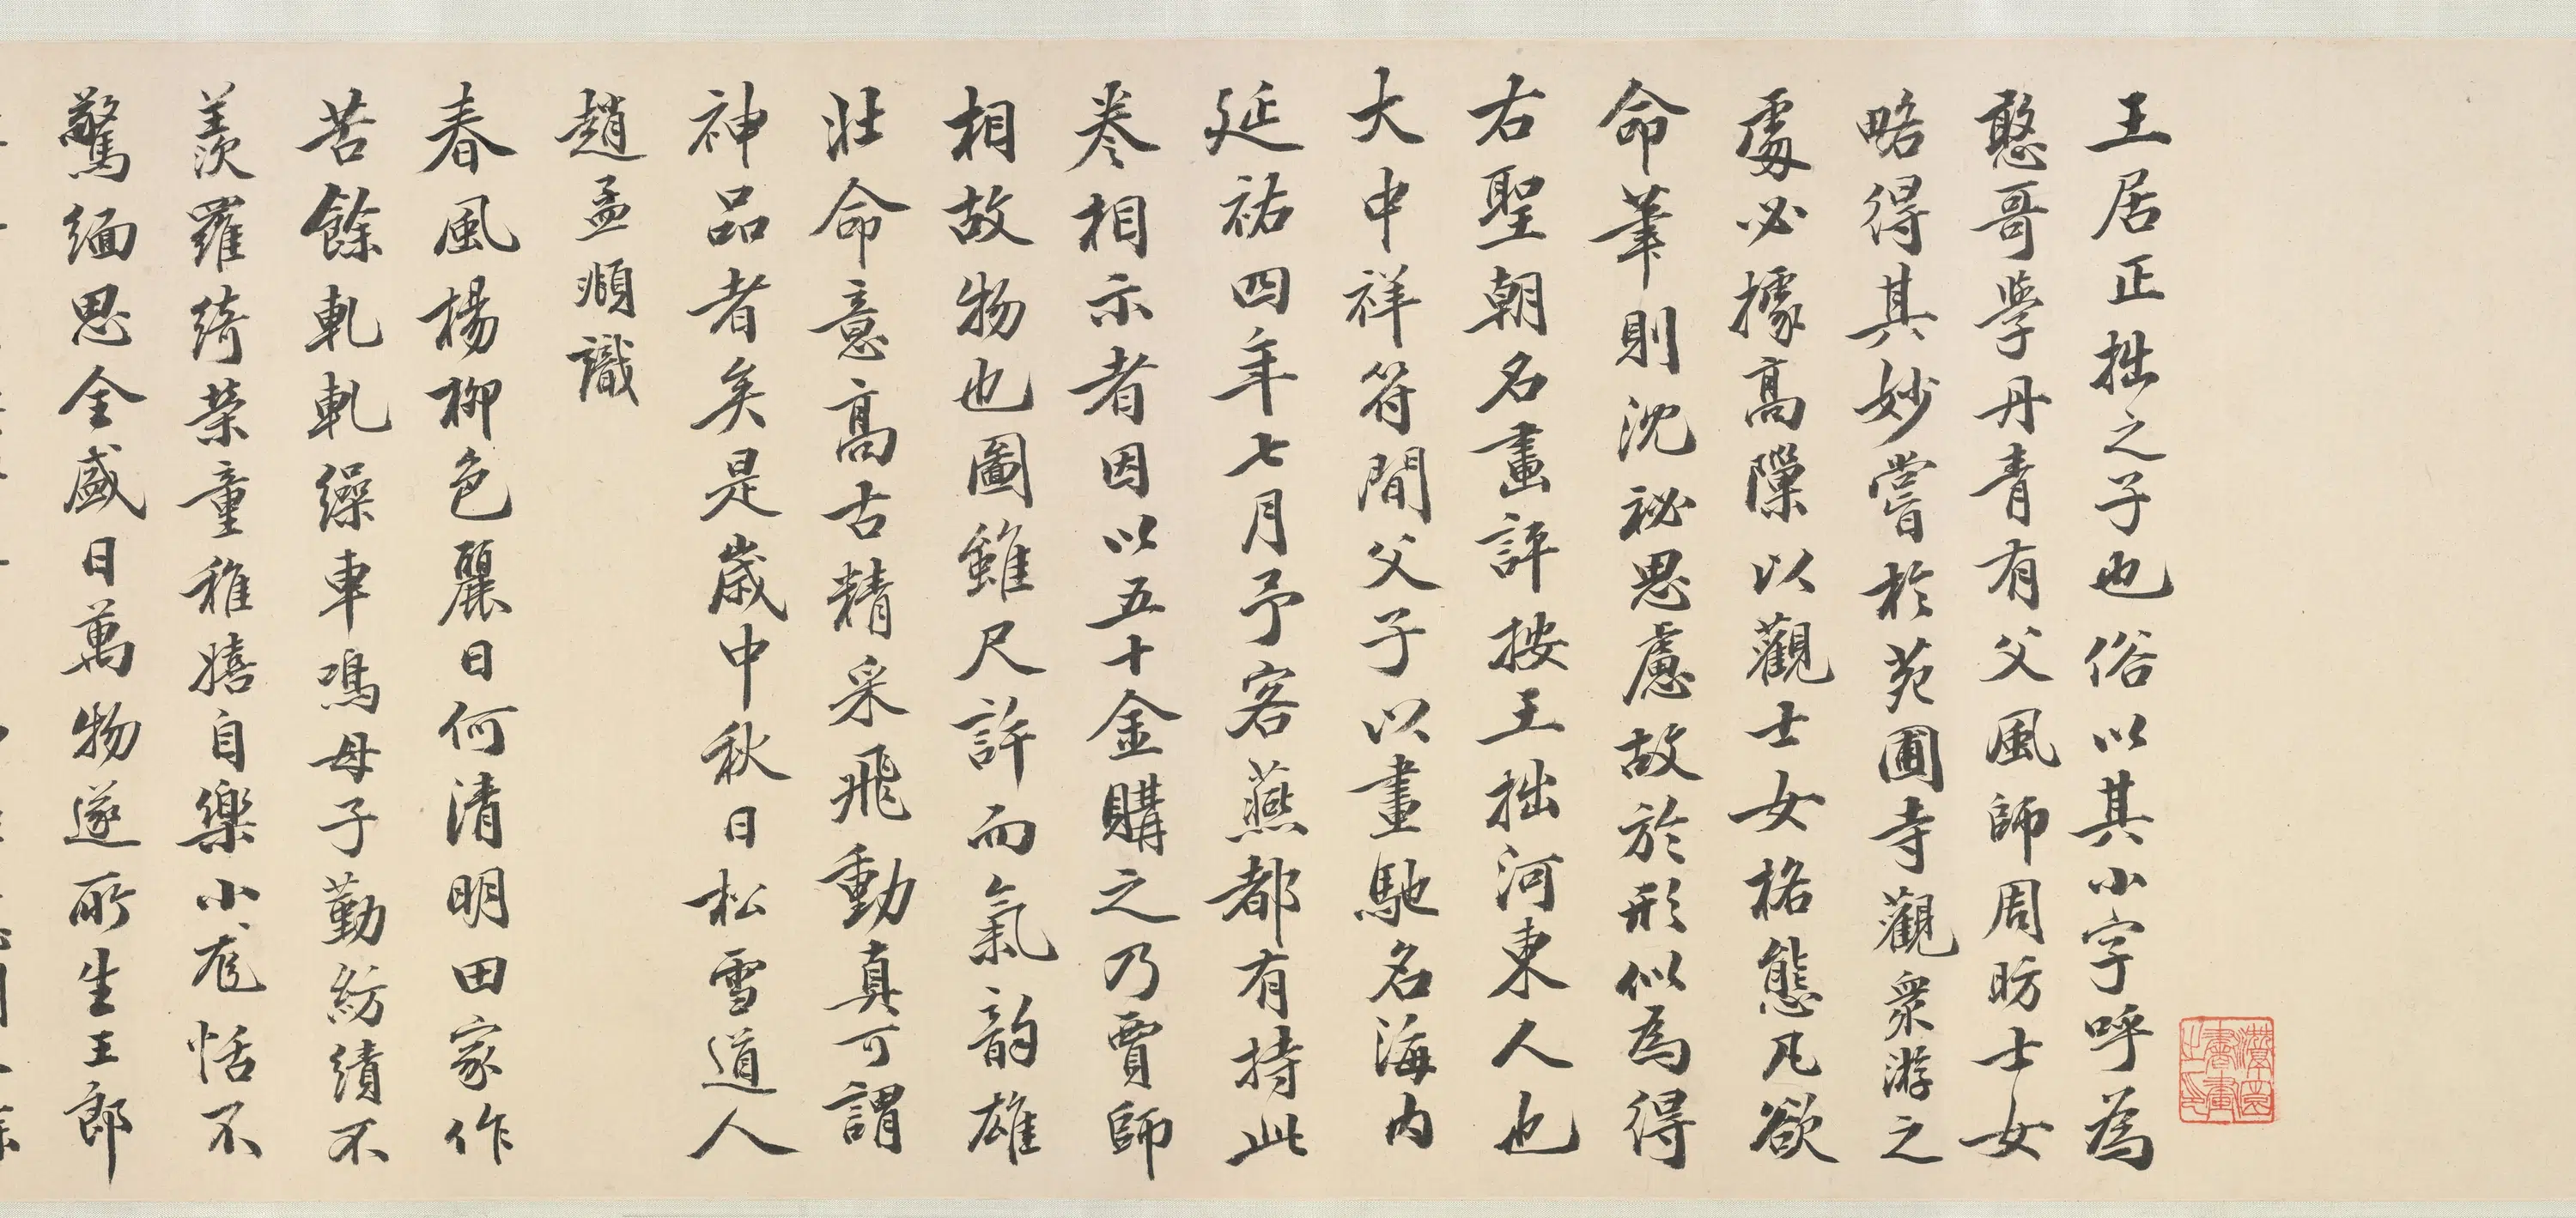 王居正拙之子也俗以其小字呼為
憨哥學丹青有父風師周昉士女
略得其妙嘗於苑圃寺觀衆游之
處必據高隙以觀士女格態凡欲
命筆則沈祕思慮故於形似為得
右聖朝名畫評按王拙河東人也
大中祥符間父子以畫馳名海內
延祐四年七月予客燕都有持此
卷相示者因以五十金購之乃賈師
相故物也圖雖尺許而氣韵雄
壯命意高古精采飛動真可謂
神品者矣是歲中秋日松雪道人
趙孟頫識
春風楊柳色麗日何清明田家作
苦餘軋軋繰車鳴母子勤紡績不
羨羅綺榮童稚嬉自樂小尨恬不
驚緬思全盛日萬物遂所生王郎